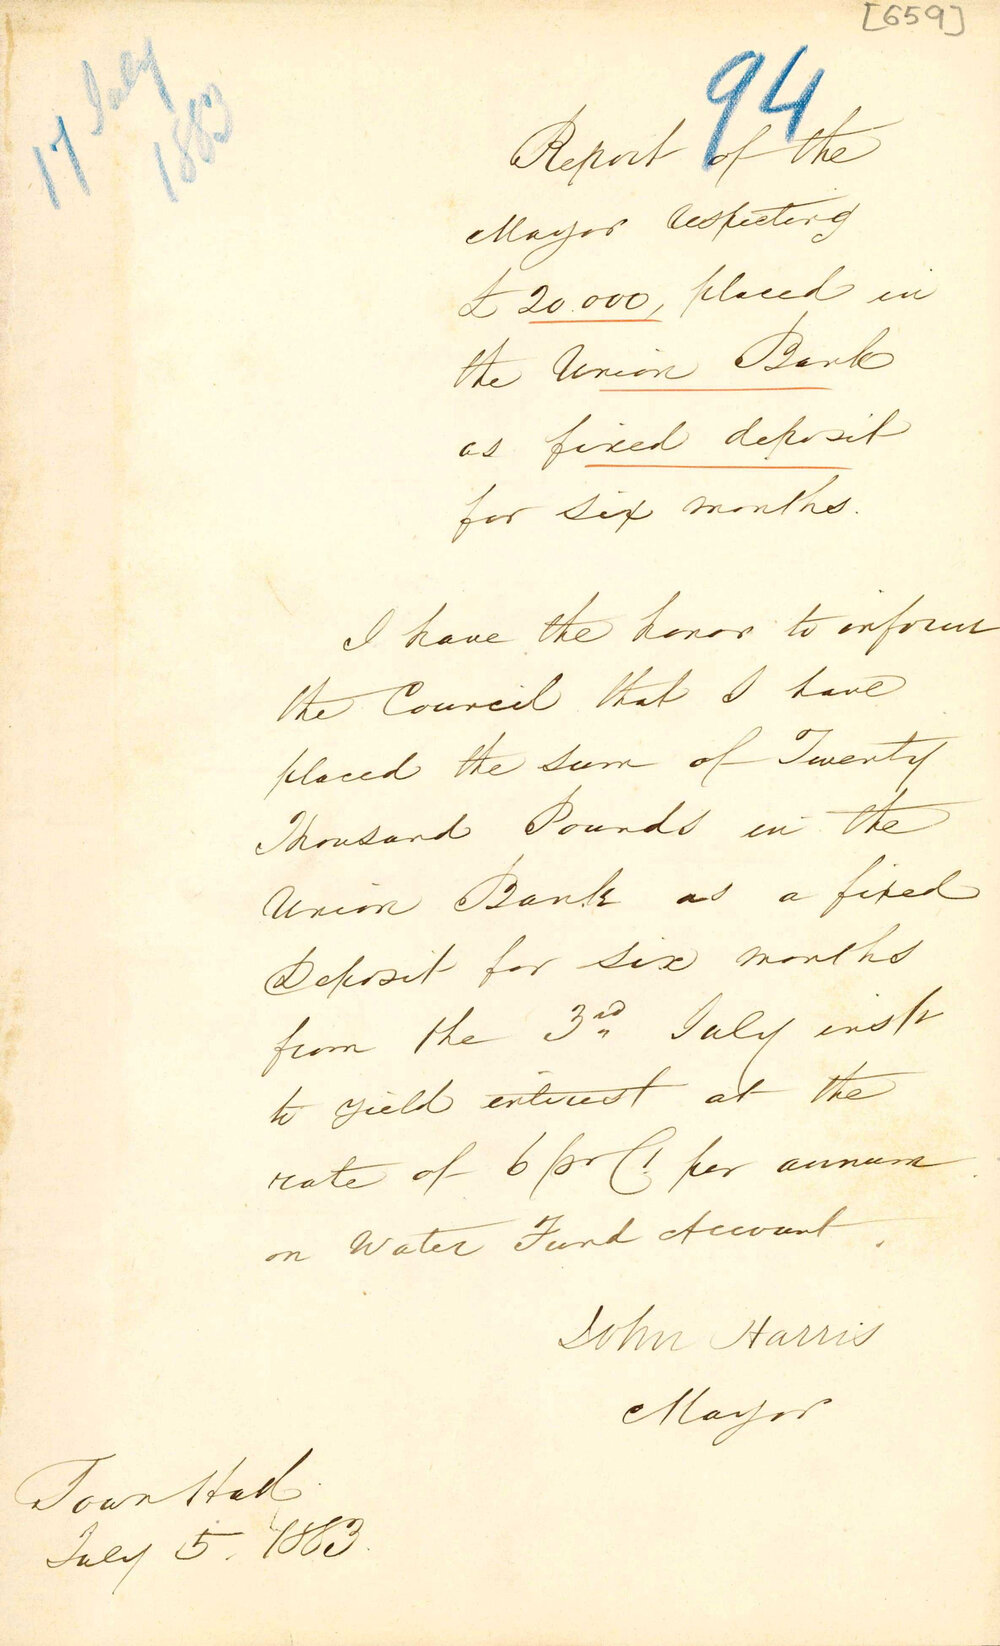 [659]
94
17 July
1883
Report of the
Mayor respecting
£20.000, placed in
the Union Bank
as fixed deposit
for six months.
I have the honor to inform
the Council that I have
placed the sum of Twenty
Thousand Pounds in the
Union Bank as a fixed
Deposit for six months
from the 3rd July inst
to yield interest at the
rate of 6 pr Ct per annum
on Water Fund Account.
John Harris
Mayor
Town Hall.
July 5. 1883.